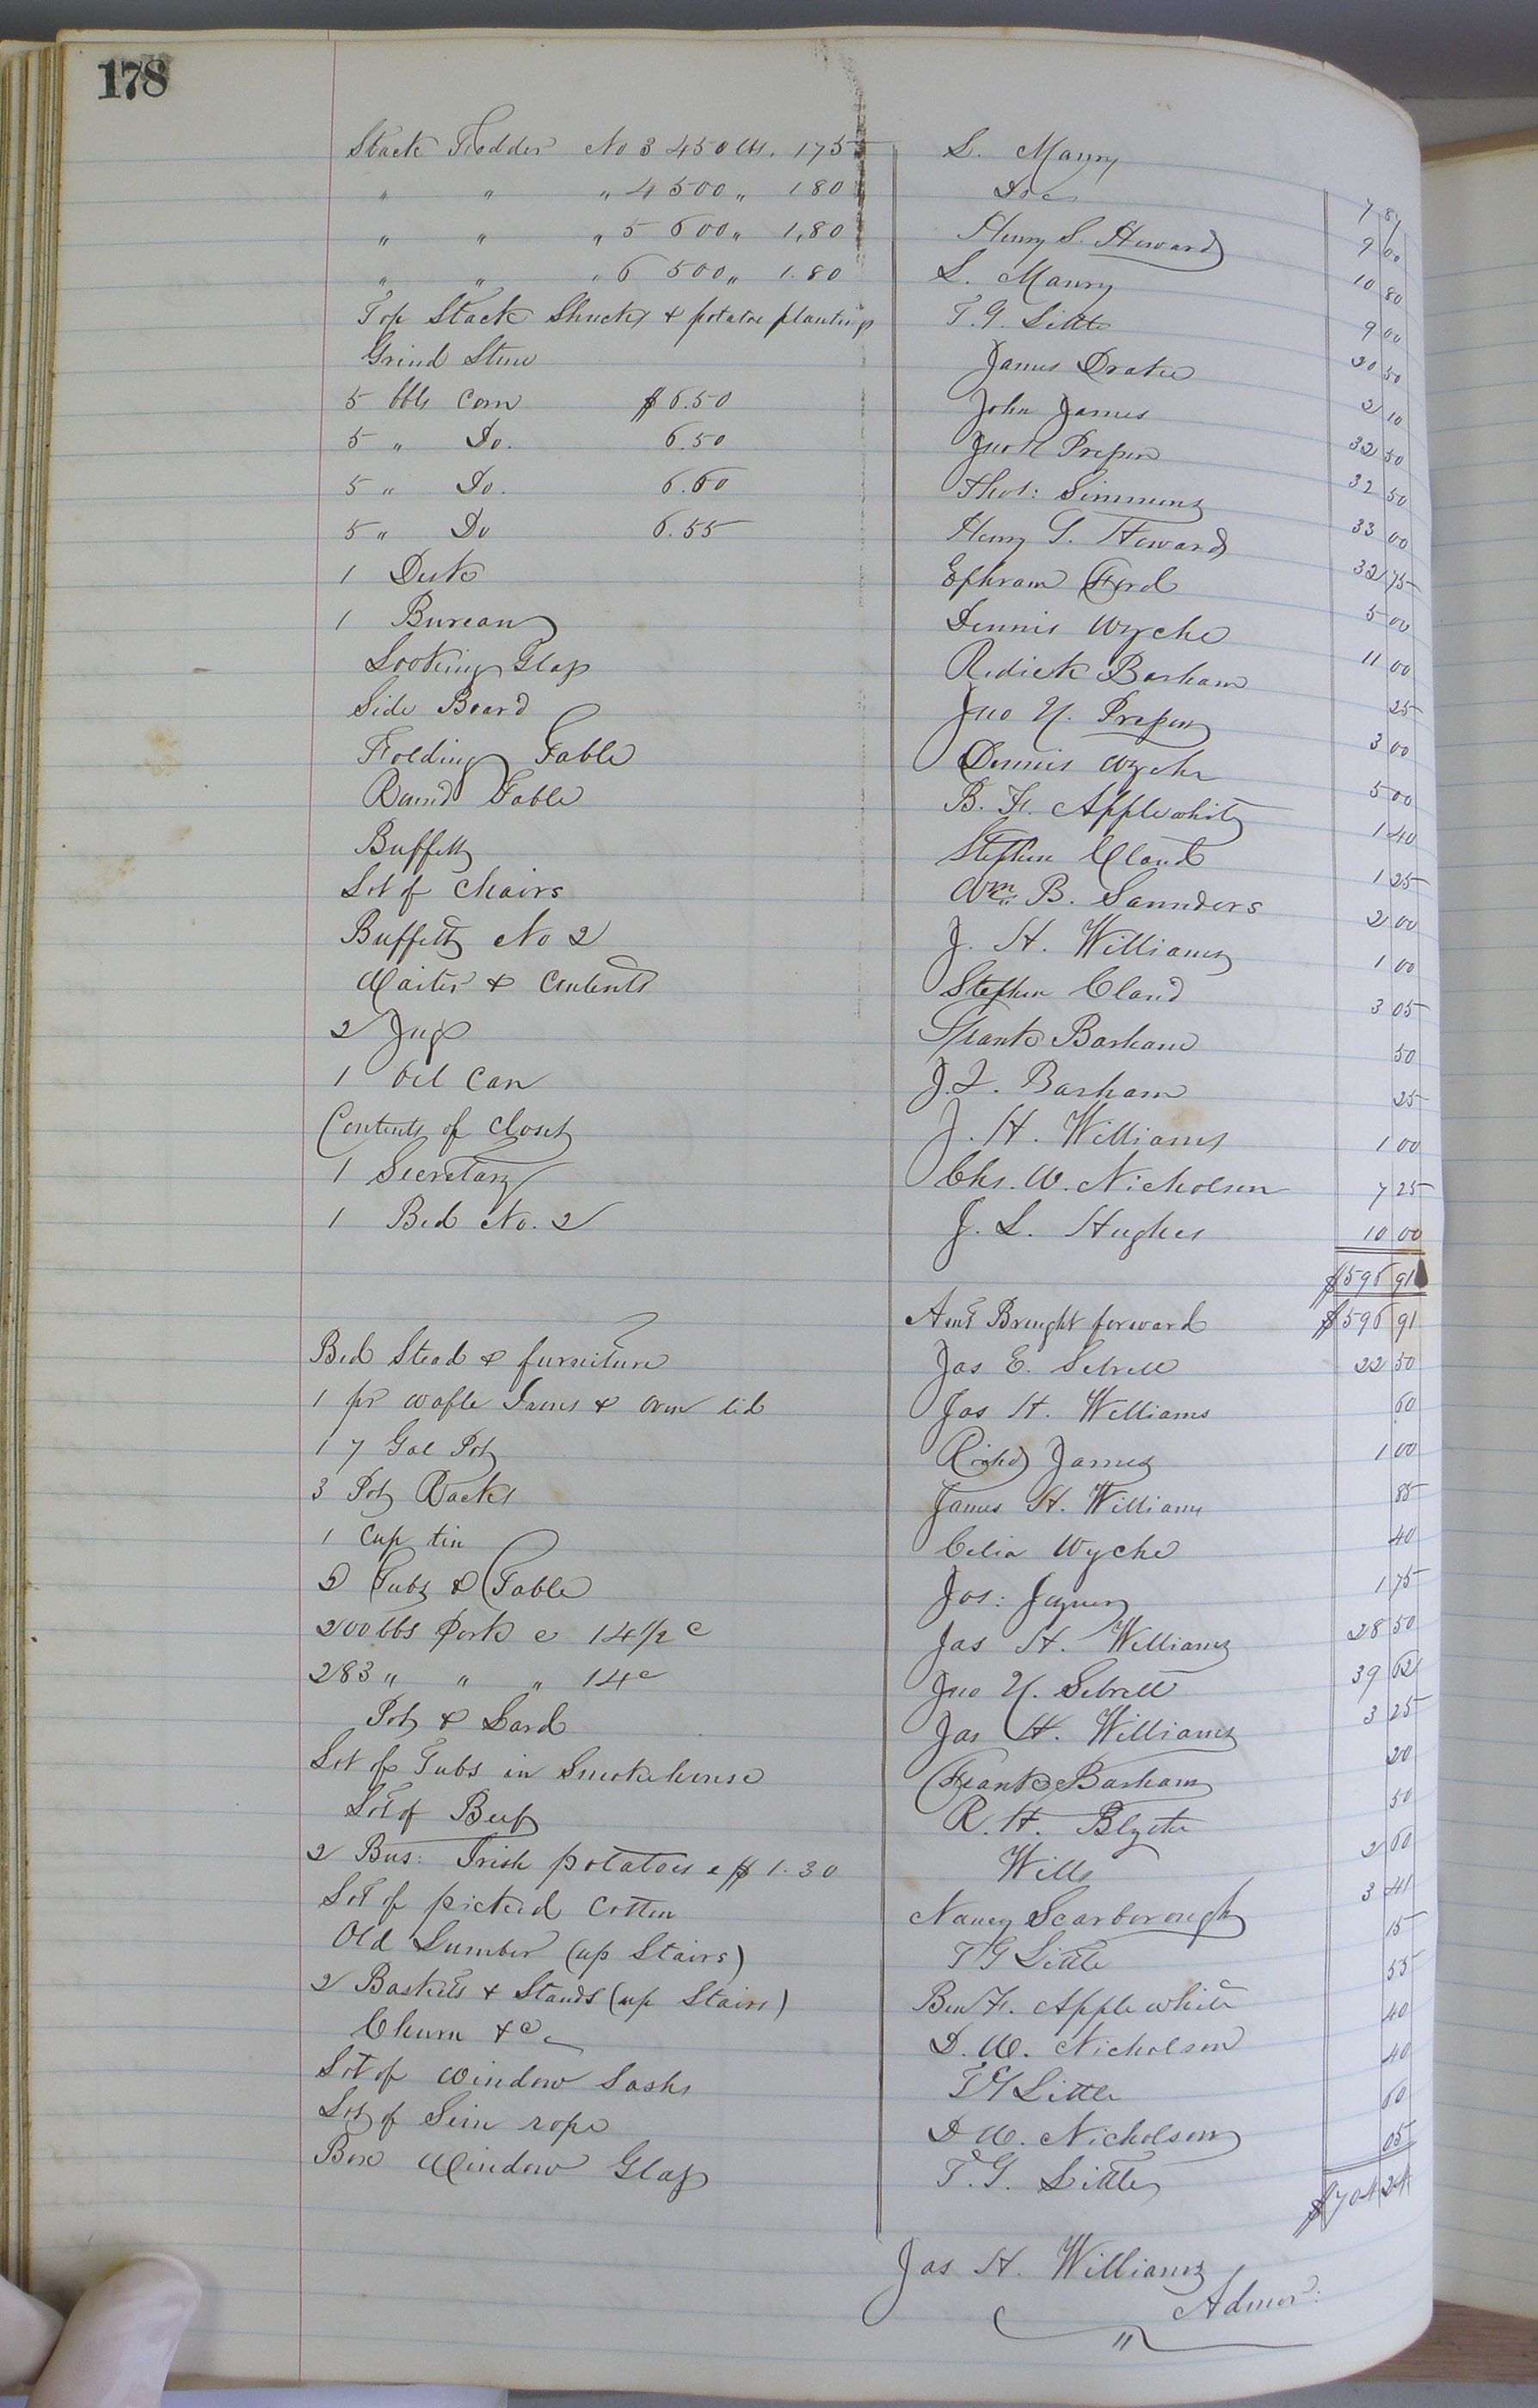 178
Stack Fodder No 3 450 lbs. 1.75 L. Maury 7 87
" " " 4 500 " 180 Do 9 00
" " " 5 600 " 1,80 Henry S. Howard 10 80
" " " 6 500 " 1.80 L. Maury 9 00
Top Stack Shucks & potatoe plantings T. G. Little 20 50
Grind Stone James Drake 2 10
5 bbls Corn $6.50 John James 32 50
5 " Do. 6.50 Jno N Presson 32 50
5 " Do. 6.60 Thos: Simmons 33 00
5 " Do 6.55 Henry S. Howard 32 75
1 Desk Ephram Ford 5 00
1 Bureau Dennis Wyche 11 00
Looking Glass Redick Barham 25
Side Board Jno N. Presson 3 00
Folding Table Dennis Wyche 5 00
Round Table B. F. Applewhite 1 40
Buffett Stephen Claud 1 25
Lot of Chairs Wm. B. Saunders 2 00
Buffett No 2 J. H. Williams 1 00
Waiter & Contents Stephen Claud 3 05
2 Jugs Frank Barham 50
1 Oil Can J. L. Barham 25
Contents of Closet J. H. Williams 1 00
1 Secretary Chs. W. Nicholson 7 25
1 Bed No. 2 J. L. Hughes 10 00
$596 91
Amt Brought forward $596 91
Bed Stead & furniture Jas E. Sebrell 22 50
1 pr wafle Irons & oven lid Jas H. Williams 60
1 7 Gal Pot Richd James 1 00
3 Pot Racks James H. Williams 85
1 Cup tin Celia Wyche 40
5 Tubs & Table Jos: Joyner 1 75
200 lbs Pork @ 14 1/2 c Jas H. Williams 28 50
283 " " " 14 c Jno N. Sebrell 39 62
Pot & Lard Jas H. Williams 3 25
Lot of Tubs in Smokehouse Frank Barham 20
Lot of Beef R. H. Blythe 50
2 Bus: Irish potatoes @ $1.30 Wills 2 60
Lot of picked Cotton Nancy Scarborough 3 41
Old Lumber (up Stairs) T G Little 15
2 Baskets & Stands (up Stairs) Ben F. Applewhite 55
Churn &c. D. W. Nicholson 40
Lot of window Sashs T G Little 40
Lot of Sein rope D W. Nicholson 60
Box Window Glass T. G. Little 05
$704 24
Jas H. Williams
Admor.
"